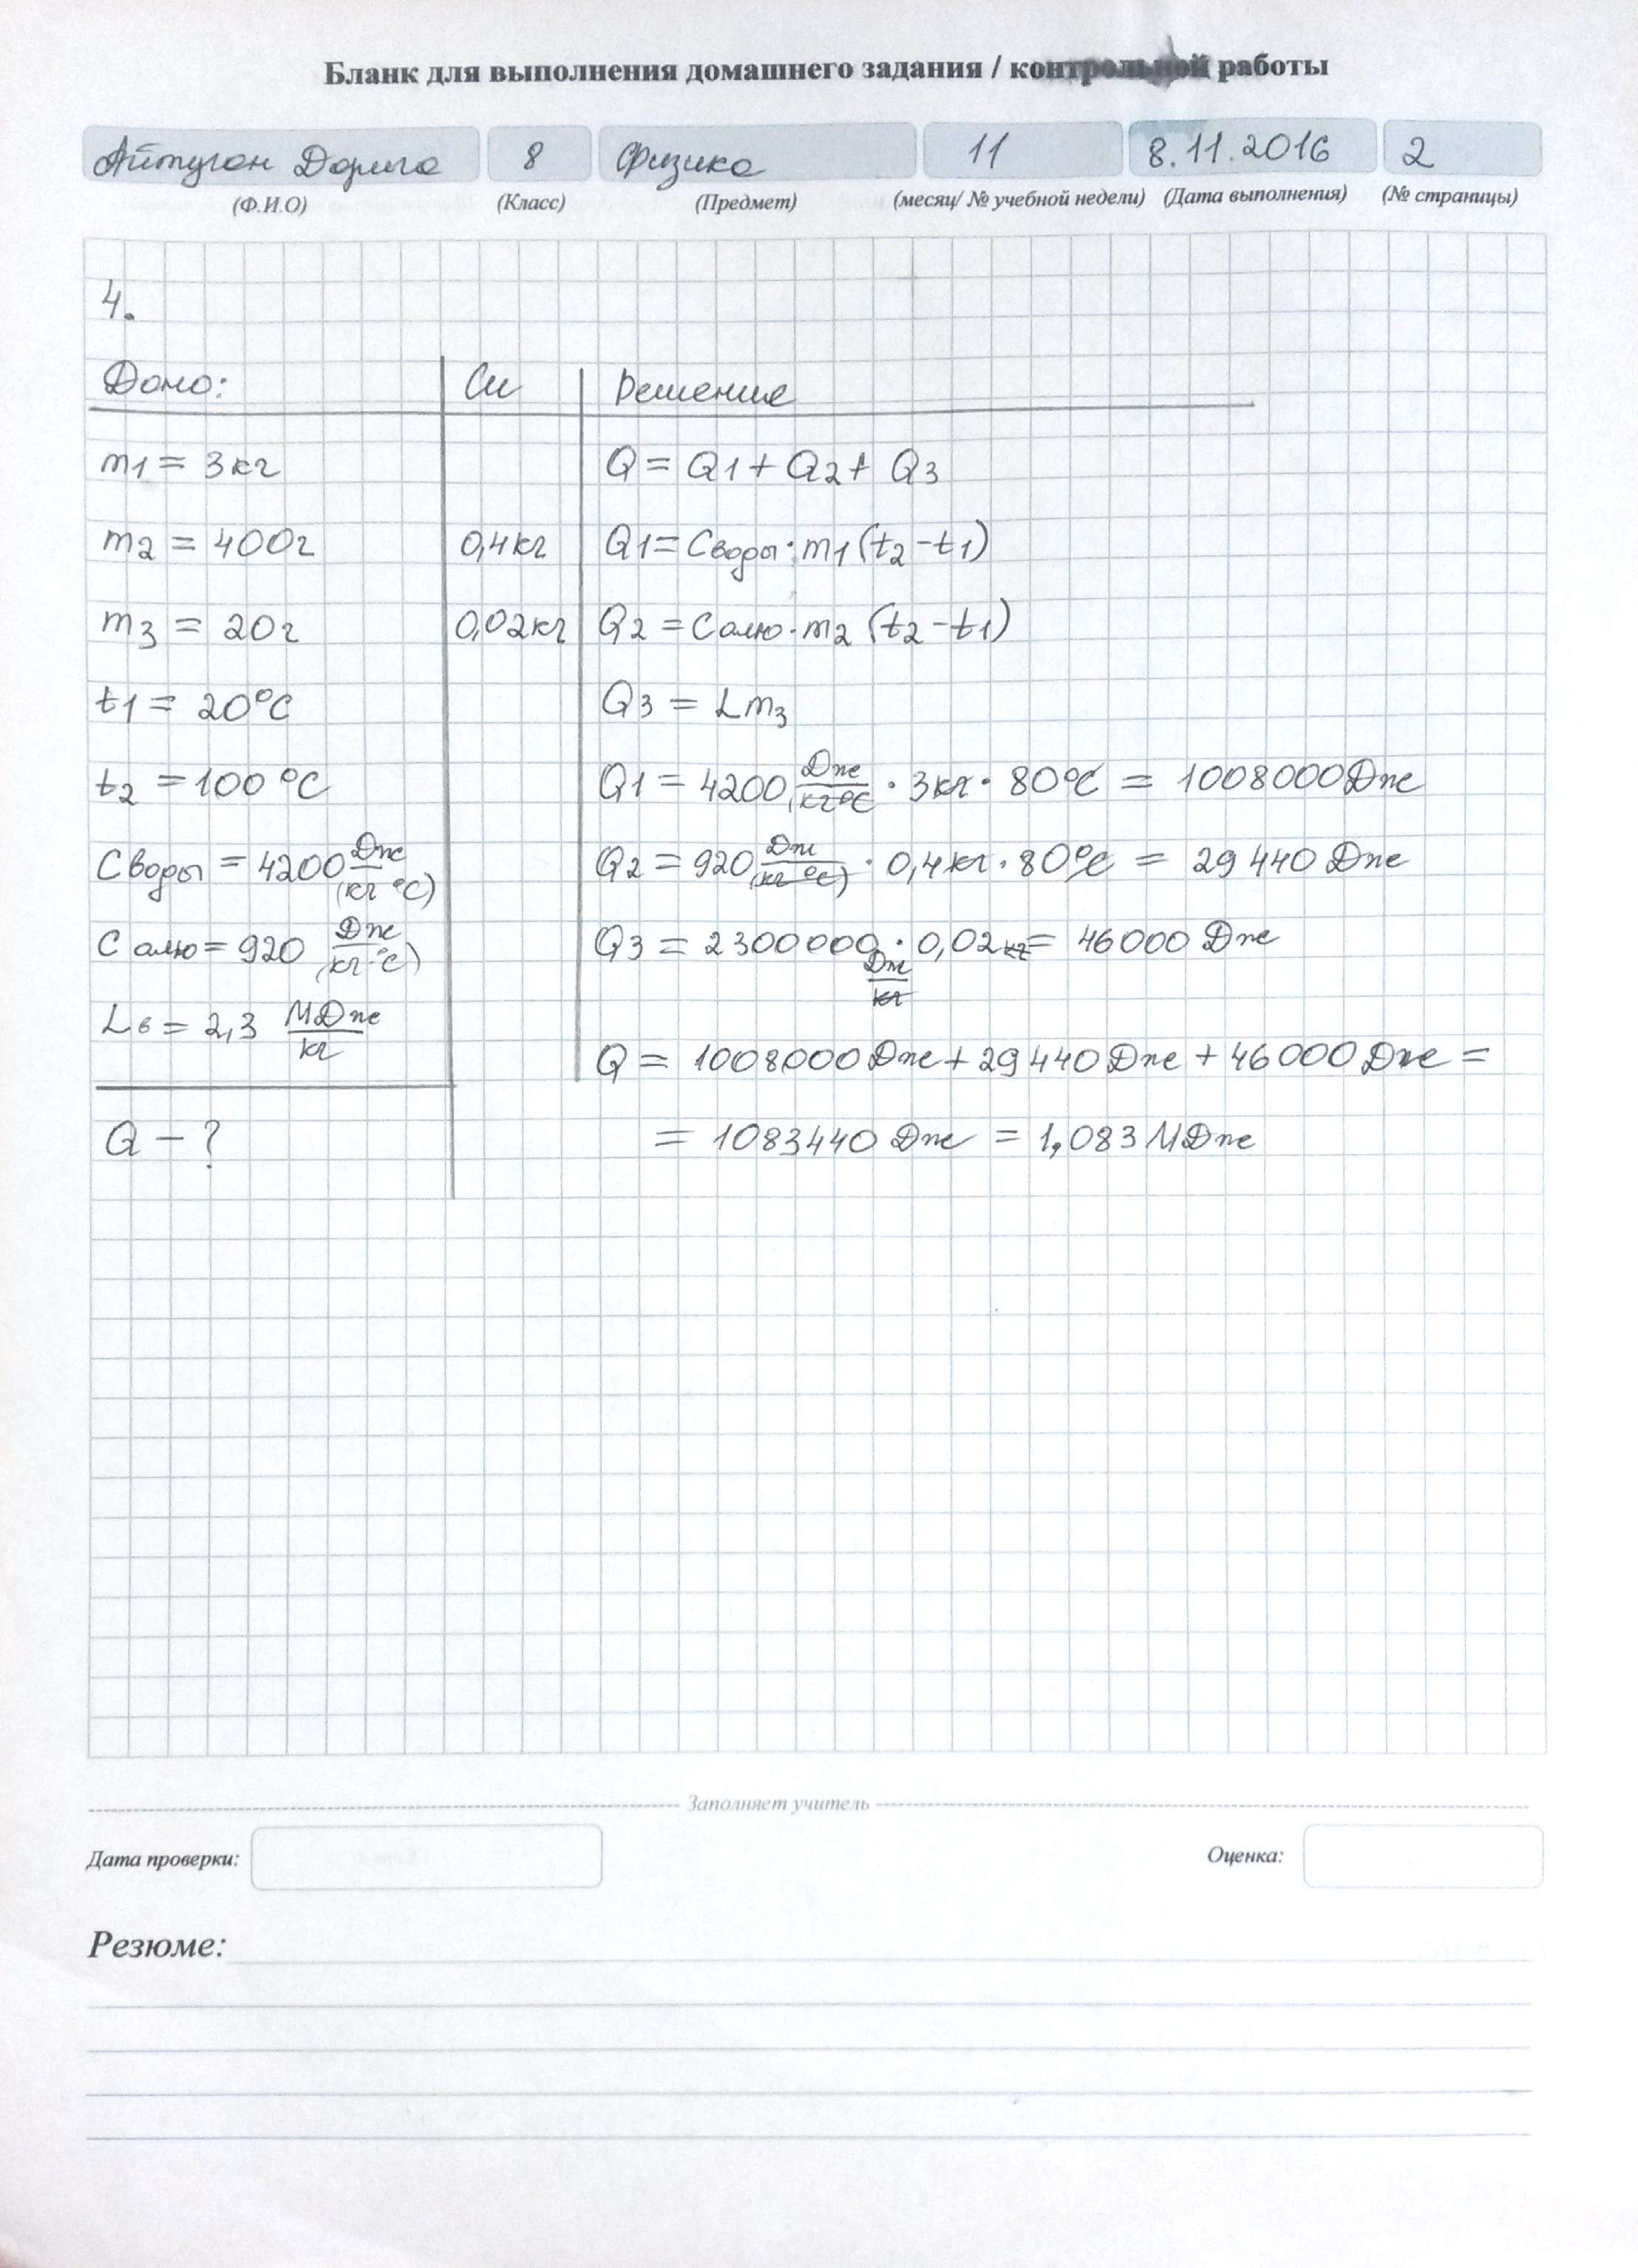 Бланк для выполнения домашнего задания / контрольной работы
Айтуган Дарига 8 Физика 11 8.11.2016 2
(Ф.И.О) (Класс) (Предмет) (месяц/ № учебной недели) (Дата выполнения) (№ страницы)
4.
Дано: Си Решение
m1 = 3кг Q = Q1 + Q2 + Q3
m2 = 400г 0,4кг Q1 = Cводы · m1 (t2 - t1)
m3 = 20г 0,02кг Q2 = Cалю · m2 (t2 - t1)
t1 = 20°C Q3 = Lm3
t2 = 100°C Q1 = 4200 Дж/кг°C · 3кг · 80°C = 1008000Дж
Cводы = 4200 Дж/(кг °C) Q2 = 920 Дж/(кг °C) · 0,4кг · 80°C = 29440 Дж
C алю = 920 Дж/(кг·°C) Q3 = 2300000 Дж/кг · 0,02кг = 46000 Дж
Lв = 2,3 МДж/кг
Q = 1008000Дж + 29440Дж + 46000Дж =
Q - ? = 1083440 Дж = 1,083 МДж
Заполняет учитель
Дата проверки: Оценка:
Резюме: